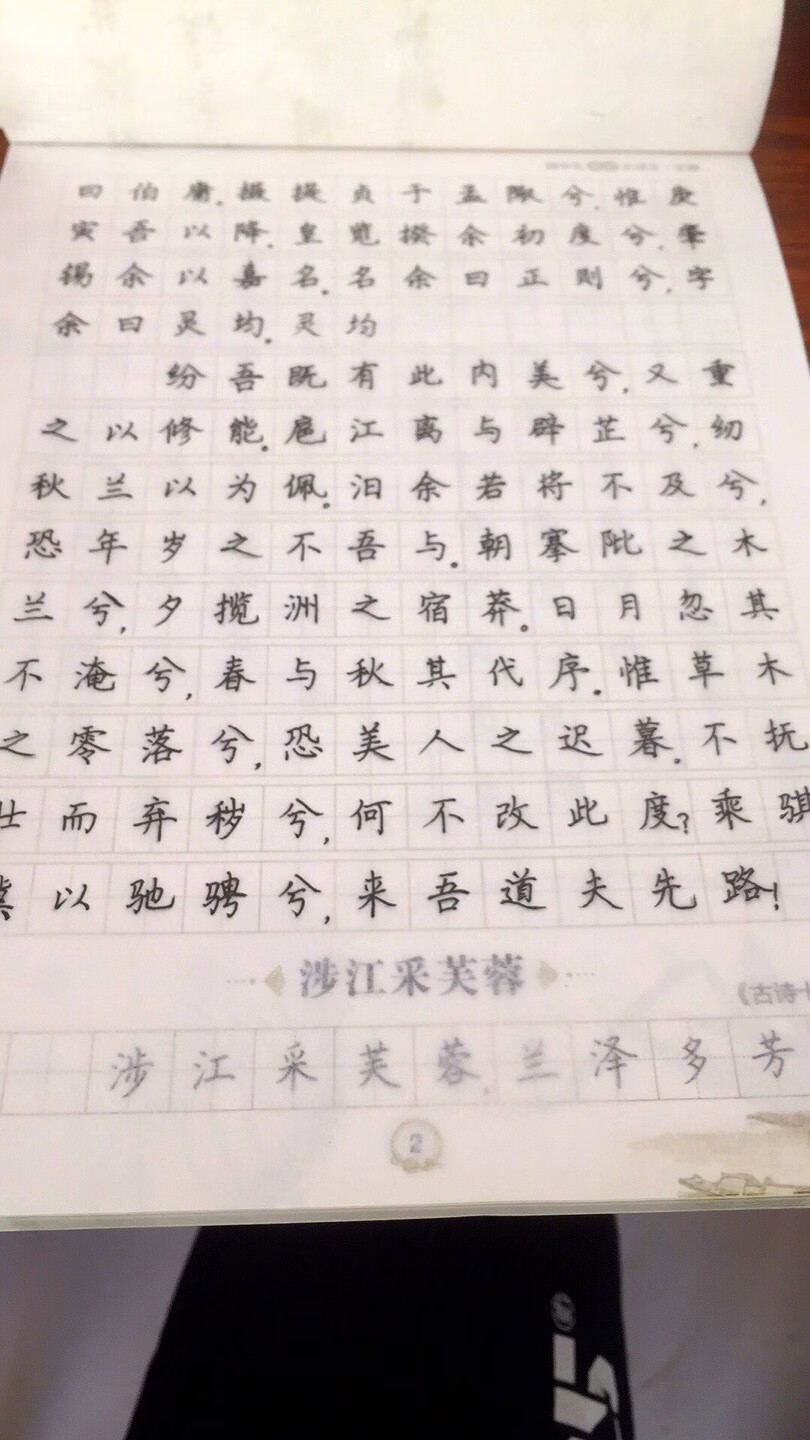 曰伯庸。摄提贞于孟陬兮，惟庚
寅吾以降。皇览揆余初度兮，肇
锡余以嘉名。名余曰正则兮，字
余曰灵均。灵均
纷吾既有此内美兮，又重
之以修能。扈江离与辟芷兮，纫
秋兰以为佩。汩余若将不及兮，
恐年岁之不吾与。朝搴阰之木
兰兮，夕揽洲之宿莽。日月忽其
不淹兮，春与秋其代序。惟草木
之零落兮，恐美人之迟暮。不抚
壮而弃秽兮，何不改此度？乘骐
骥以驰骋兮，来吾道夫先路！
涉江采芙蓉
《古诗十
涉江采芙蓉，兰泽多芳
2